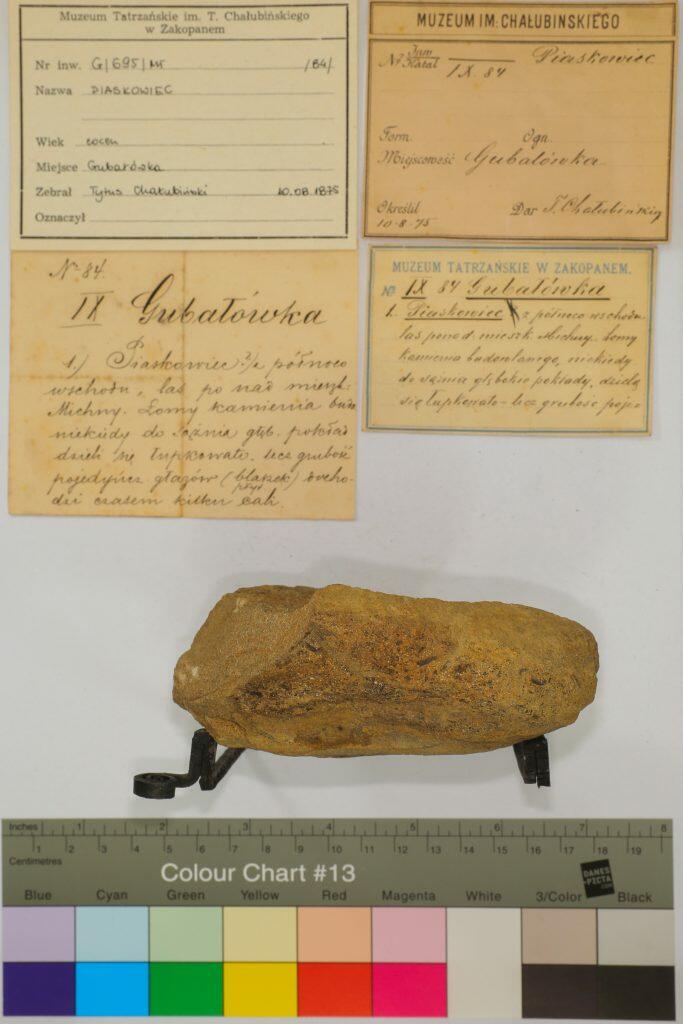 Muzeum Tatrzańskie im. T. Chałubińskiego
w Zakopanem
Nr inw. G/695/MT /84/
Nazwa PIASKOWIEC
Wiek eocen
Miejsce Gubałówka
Zebrał Tytus Chałubiński 10.08.1875
Oznaczył
MUZEUM IM: CHAŁUBINSKIEGO
№ Inw Katal IX. 84 Piaskowiec
Form. Ogn.
Miejscowość Gubałówka
Określił Dar T. Chałubińskiy
10-8-75
№ 84.
IX Gubałówka
1.) Piaskowiec z północo
wschodu, las po nad mieszk.
Michny. Łomy kamienia
niekiedy do sążnia głęb. pokład
dzieli się łupkowato. lecz grubość
pojedyńcz. głazów (blaszek) docho-
płyt
dzi czasem kilku cali.
MUZEUM TATRZAŃSKIE W ZAKOPANEM.
№ IX 84 Gubałówka
1. Piaskowiec z północo wschodu.
las ponad mieszk. Michny. Łomy
kamienia budowlanego, niekiedy
do sążnia głębokie pokłady, dzielą
się łupkowato - lecz grubość poje=
Inches 1 2 3 4 5 6 7 8
Centimetres 1 2 3 4 5 6 7 8 9 10 11 12 13 14 15 16 17 18 19
Colour Chart #13
DANES
-PICTA
.COM
Blue Cyan Green Yellow Red Magenta White 3/Color Black